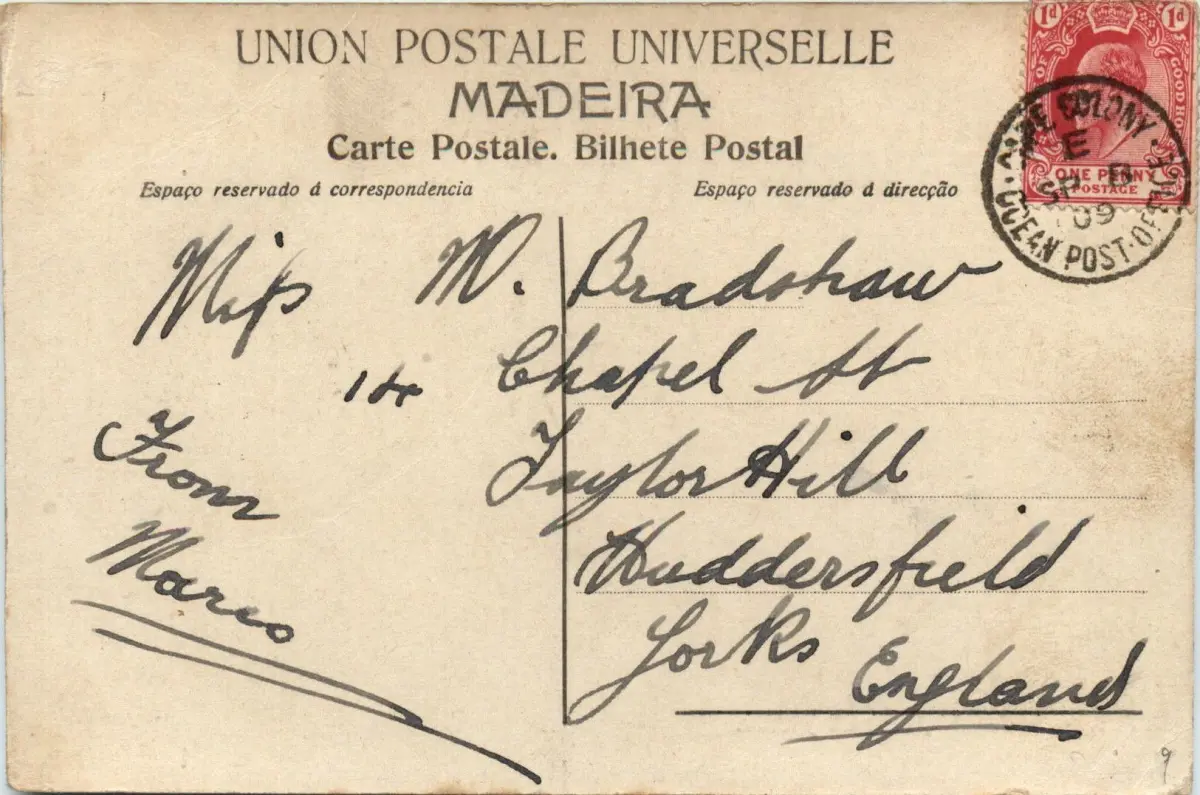 UNION POSTALE UNIVERSELLE
MADEIRA
Carte Postale. Bilhete Postal
Espaço reservado á correspondencia
Espaço reservado á direcção
1d 1d
OF GOOD HO
ONE PENNY
POSTAGE
CAPE COLONY
E
SP 8
09
OCEAN POST-OFFICE
Miss M. Bradshaw
14 Chapel St
Taylor Hill
Huddersfield
Yorks
England
From
9